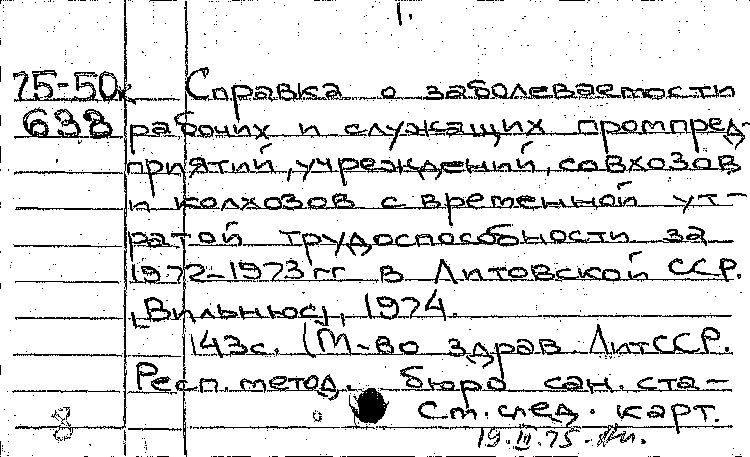 1.
75-50к Справка о заболеваемости
638 рабочих и служащих промпред-
приятий, учреждений, совхозов
и колхозов с временной ут-
ратой трудоспособности за
1972-1973 гг в Литовской ССР.
[Вильнюс], 1974.
143с. (М-во здрав. ЛитССР.
Респ. метод. бюро сан. ста-
8 См. след. карт.
19.III.75.